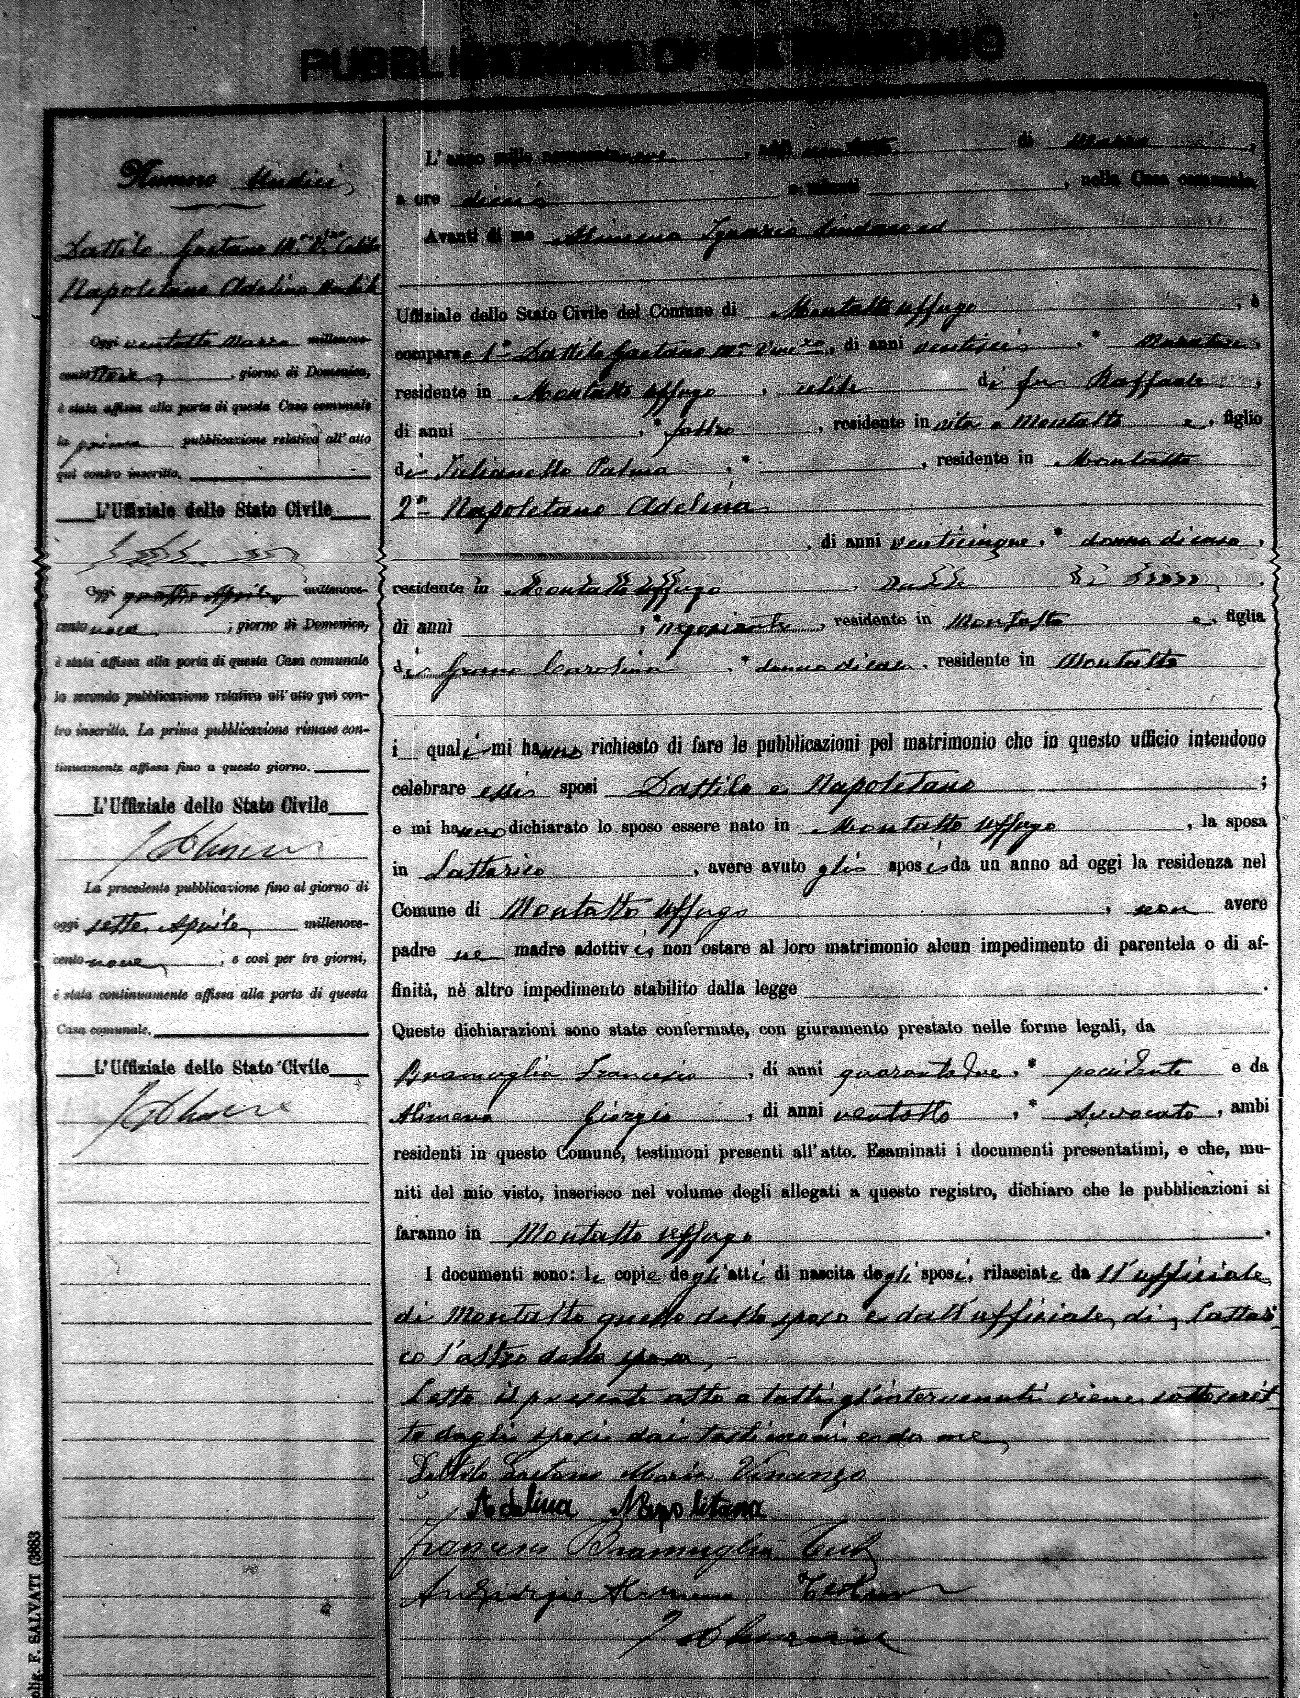 PUBBLICAZIONE DI MATRIMONIO
Numero Undici
Dattilo Gaetano M.a Vinc.zo celibe
Napoletano Adelina nubile
Oggi ventotto Marzo millenove-
cento nove, giorno di Domenica,
è stata affissa alla porta di questa Casa comunale
la prima pubblicazione relativa all'atto
qui contro inscritto.
L'Uffiziale dello Stato Civile
Oggi quattro Aprile millenove-
cento nove; giorno di Domenica,
è stata affissa alla porta di questa Casa comunale
la seconda pubblicazione relativa all'atto qui con-
tro inscritto. La prima pubblicazione rimase con-
tinuamente affissa fino a questo giorno.
L'Uffiziale dello Stato Civile
La precedente pubblicazione fino al giorno di
oggi sette Aprile millenove-
cento nove, e così per tre giorni,
è stata continuamente affissa alla porta di questa
Casa comunale.
L'Uffiziale dello Stato Civile
L'anno mille novecento nove, addì di Marzo,
a ore dieci e minuti , nella Casa comunale
Avanti di me Alimena Ignazio Sindaco ed
Uffiziale dello Stato Civile del Comune di Montalto Uffugo, è
comparso 1° Dattilo Gaetano M.a Vinc.zo, di anni ventisei, * Muratore,
residente in Montalto Uffugo, celibe di fu Raffaele,
di anni , * fabbro, residente in vita a Montalto e, figlio
di Iulianello Palma, * , residente in Montalto
2° Napoletano Adelina
, di anni venticinque, * donna di casa,
residente in Montalto Uffugo, nubile di
di anni , * negoziante, residente in Montalto e, figlia
di Carolina * donna di casa, residente in Montalto
i quali mi hanno richiesto di fare le pubblicazioni pel matrimonio che in questo ufficio intendono
celebrare essi sposi Dattilo e Napoletano;
e mi hanno dichiarato lo sposo essere nato in Montalto Uffugo, la sposa
in Lattarico, avere avuto gli sposi da un anno ad oggi la residenza nel
Comune di Montalto Uffugo, non avere
padre ne madre adottivi, non ostare al loro matrimonio alcun impedimento di parentela o di af-
finità, nè altro impedimento stabilito dalla legge.
Queste dichiarazioni sono state confermate, con giuramento prestato nelle forme legali, da
Bramuglia Francesco, di anni quarantadue, * possidente e da
Alimena Giorgio, di anni ventotto, * Avvocato, ambi
residenti in questo Comune, testimoni presenti all'atto. Esaminati i documenti presentatimi, e che, mu-
niti del mio visto, inserisco nel volume degli allegati a questo registro, dichiaro che le pubblicazioni si
faranno in Montalto Uffugo.
I documenti sono: le copie degli atti di nascita degli sposi, rilasciate da ll'uffiziale
di Montalto quello dello sposo e dall'uffiziale di Lattari
co l'altro della sposa,
Letto il presente atto a tutti gl'intervenuti viene sottoscrit
to dagli sposi dai testimoni e da me,
Dattilo Gaetano Maria Vincenzo
Adelina Napolitana
Francesco Bramuglia Test
Giorgio Alimena
I Alimena
F. SALVATI (3883